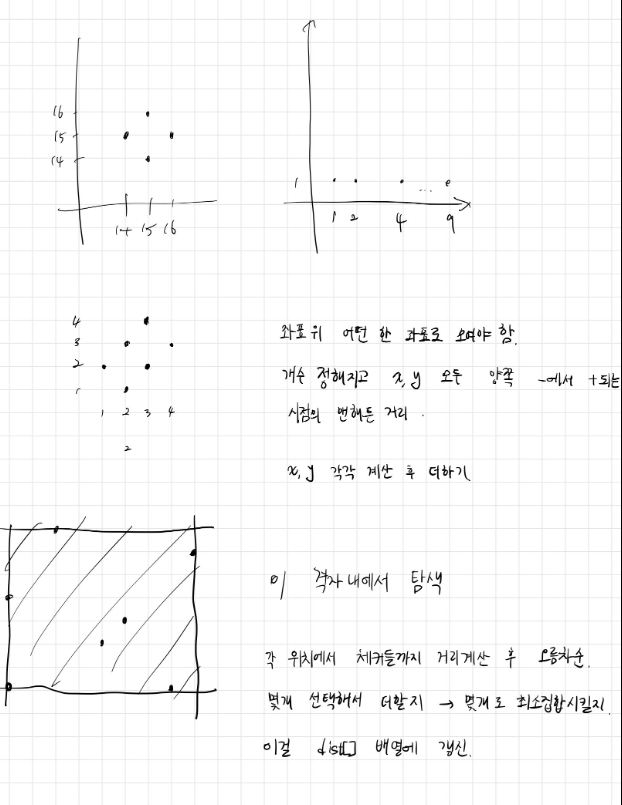 16
15
14
14 15 16
1
1 2 4 ... 9
4
3
2
1
1 2 3 4
2
좌표위 어떤 한 좌표로 모여야 함.
개수 정해지고 x, y 모두 양쪽 -에서 +되는
시점의 맨해튼 거리.
x, y 각각 계산 후 더하기
이 격자 내에서 탐색
각 위치에서 체커들까지 거리계산 후 오름차순.
몇개 선택해서 더할지 → 몇개로 최소집합시킬지.
이걸 dist[] 배열에 갱신.